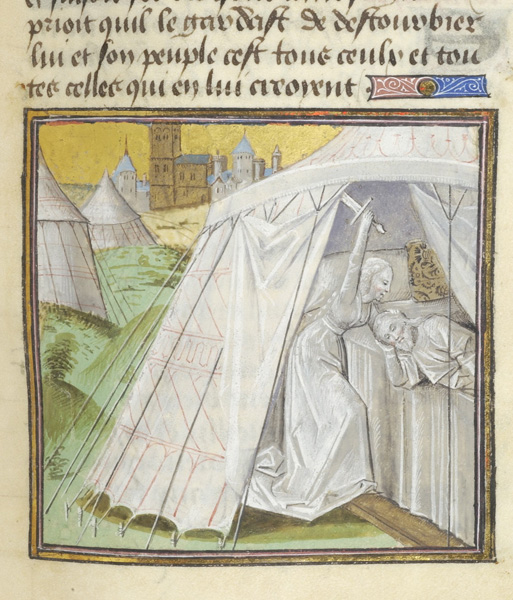 prioit quil le gardast de destourbier
lui et son peuple cest tous ceulx et tou
tes celles qui en lui creoyent